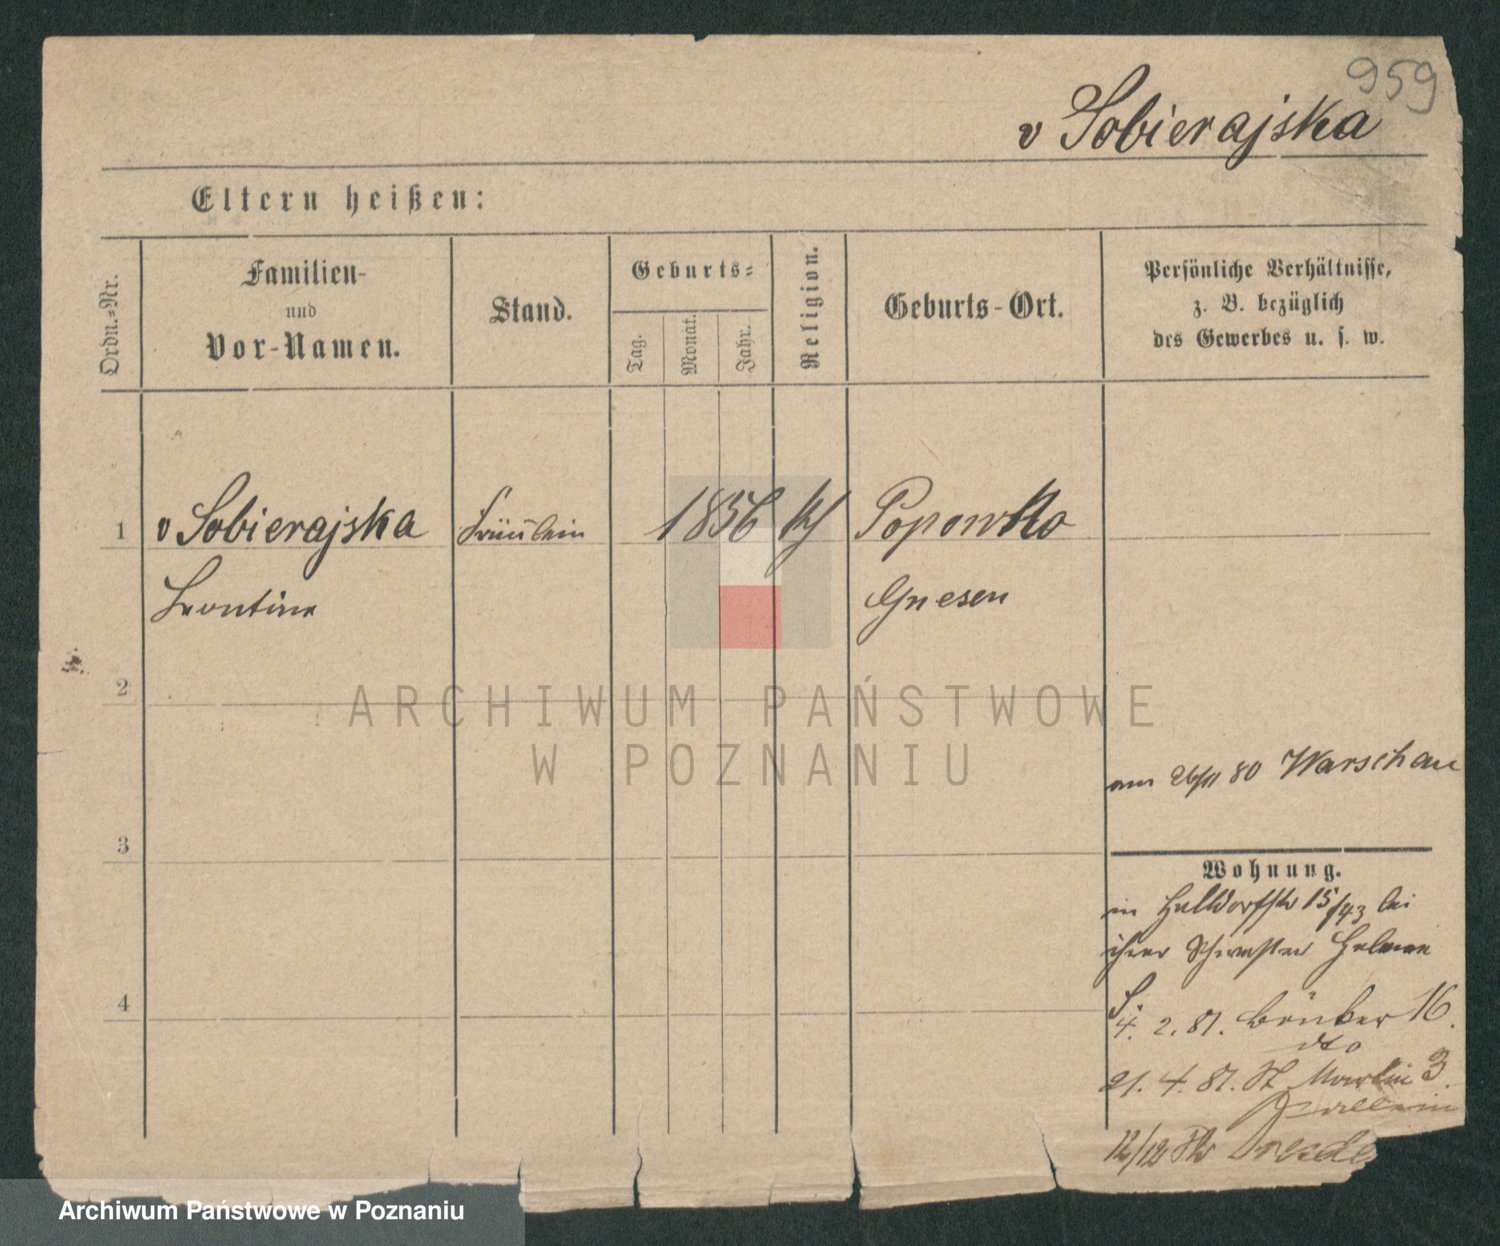 959
v Sobierajska
Eltern heißen:
Ordn.-Nr.
Familien-
und
Vor-Namen.
Stand.
Geburts-
Tag.
Monat.
Jahr.
Religion.
Geburts-Ort.
Persönliche Verhältnisse,
z. B. bezüglich
des Gewerbes u. s. w.
1 v Sobierajska Fräulein 1856 Popowko
Leontine Gnesen
2
ARCHIWUM PAŃSTWOWE
W POZNANIU
80 Warschau
3
Wohnung.
in 15/43 bei
ihrer Schwester Helene
S.
4
4. 2. 81. 16.
dto
21. 4. 81. St Martin 3.
12/12 Dresde
Archiwum Państwowe w Poznaniu